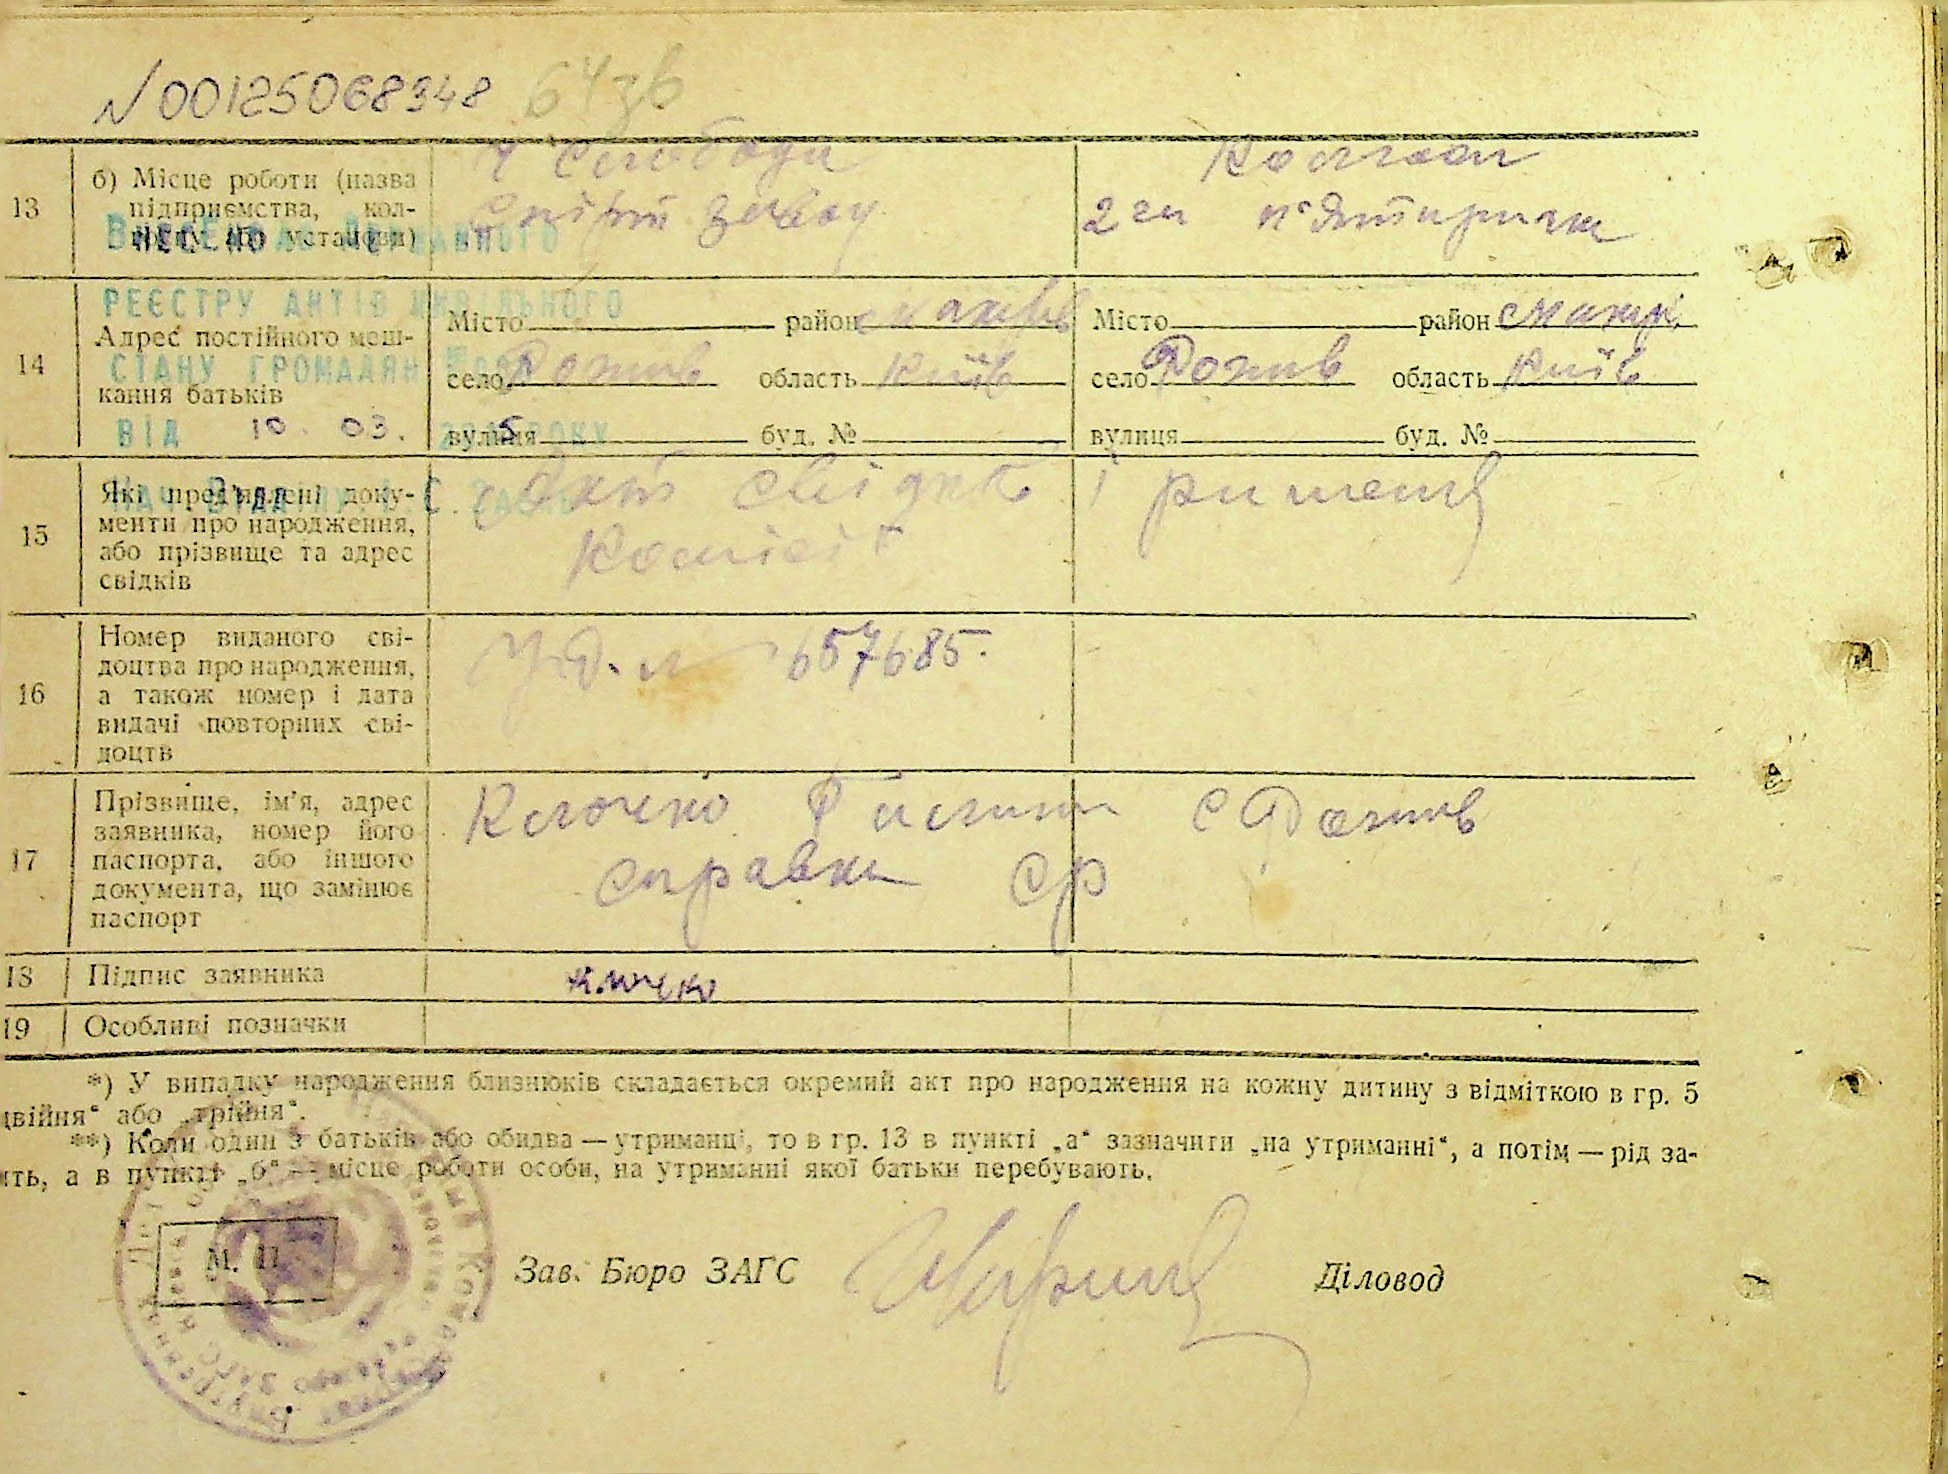 N00125068348 64зв
13
б) Місце роботи (назва
підприємства, кол-
госпу або установи)
Слободи
Спірт завод
Колгосп
2ги п'ятирічки
ВНЕСЕНО ДО ДЕРЖАВНОГО
РЕЄСТРУ АКТІВ ЦИВІЛЬНОГО
СТАНУ ГРОМАДЯН
ВІД 10. 03. РОКУ
14
Адрес постійного меш-
кання батьків
Місто район
село Рожів область Київ
вулиця буд. №
Місто район Макар
село Рожів область Київ
вулиця буд. №
15
Які пред'явлені доку-
менти про народження,
або прізвище та адрес
свідків
Акт свідк і
Комісії
16
Номер виданого сві-
доцтва про народження,
а також номер і дата
видачі повторних сві-
доцтв
657685.
17
Прізвище, ім'я, адрес
заявника, номер його
паспорта, або іншого
документа, що замінює
паспорт
Клочко с Рожів
справка СР
18 Підпис заявника
Клочко
19 Особливі позначки
*) У випадку народження близнюків складається окремий акт про народження на кожну дитину з відміткою в гр. 5
двійня“ або „трійня“.
**) Коли один з батьків або обидва — утриманці, то в гр. 13 в пункті „а“ зазначити „на утриманні“, а потім — рід за-
ять, а в пункті „б“ — місце роботи особи, на утриманні якої батьки перебувають.
М. П.
Зав. Бюро ЗАГС
Діловод